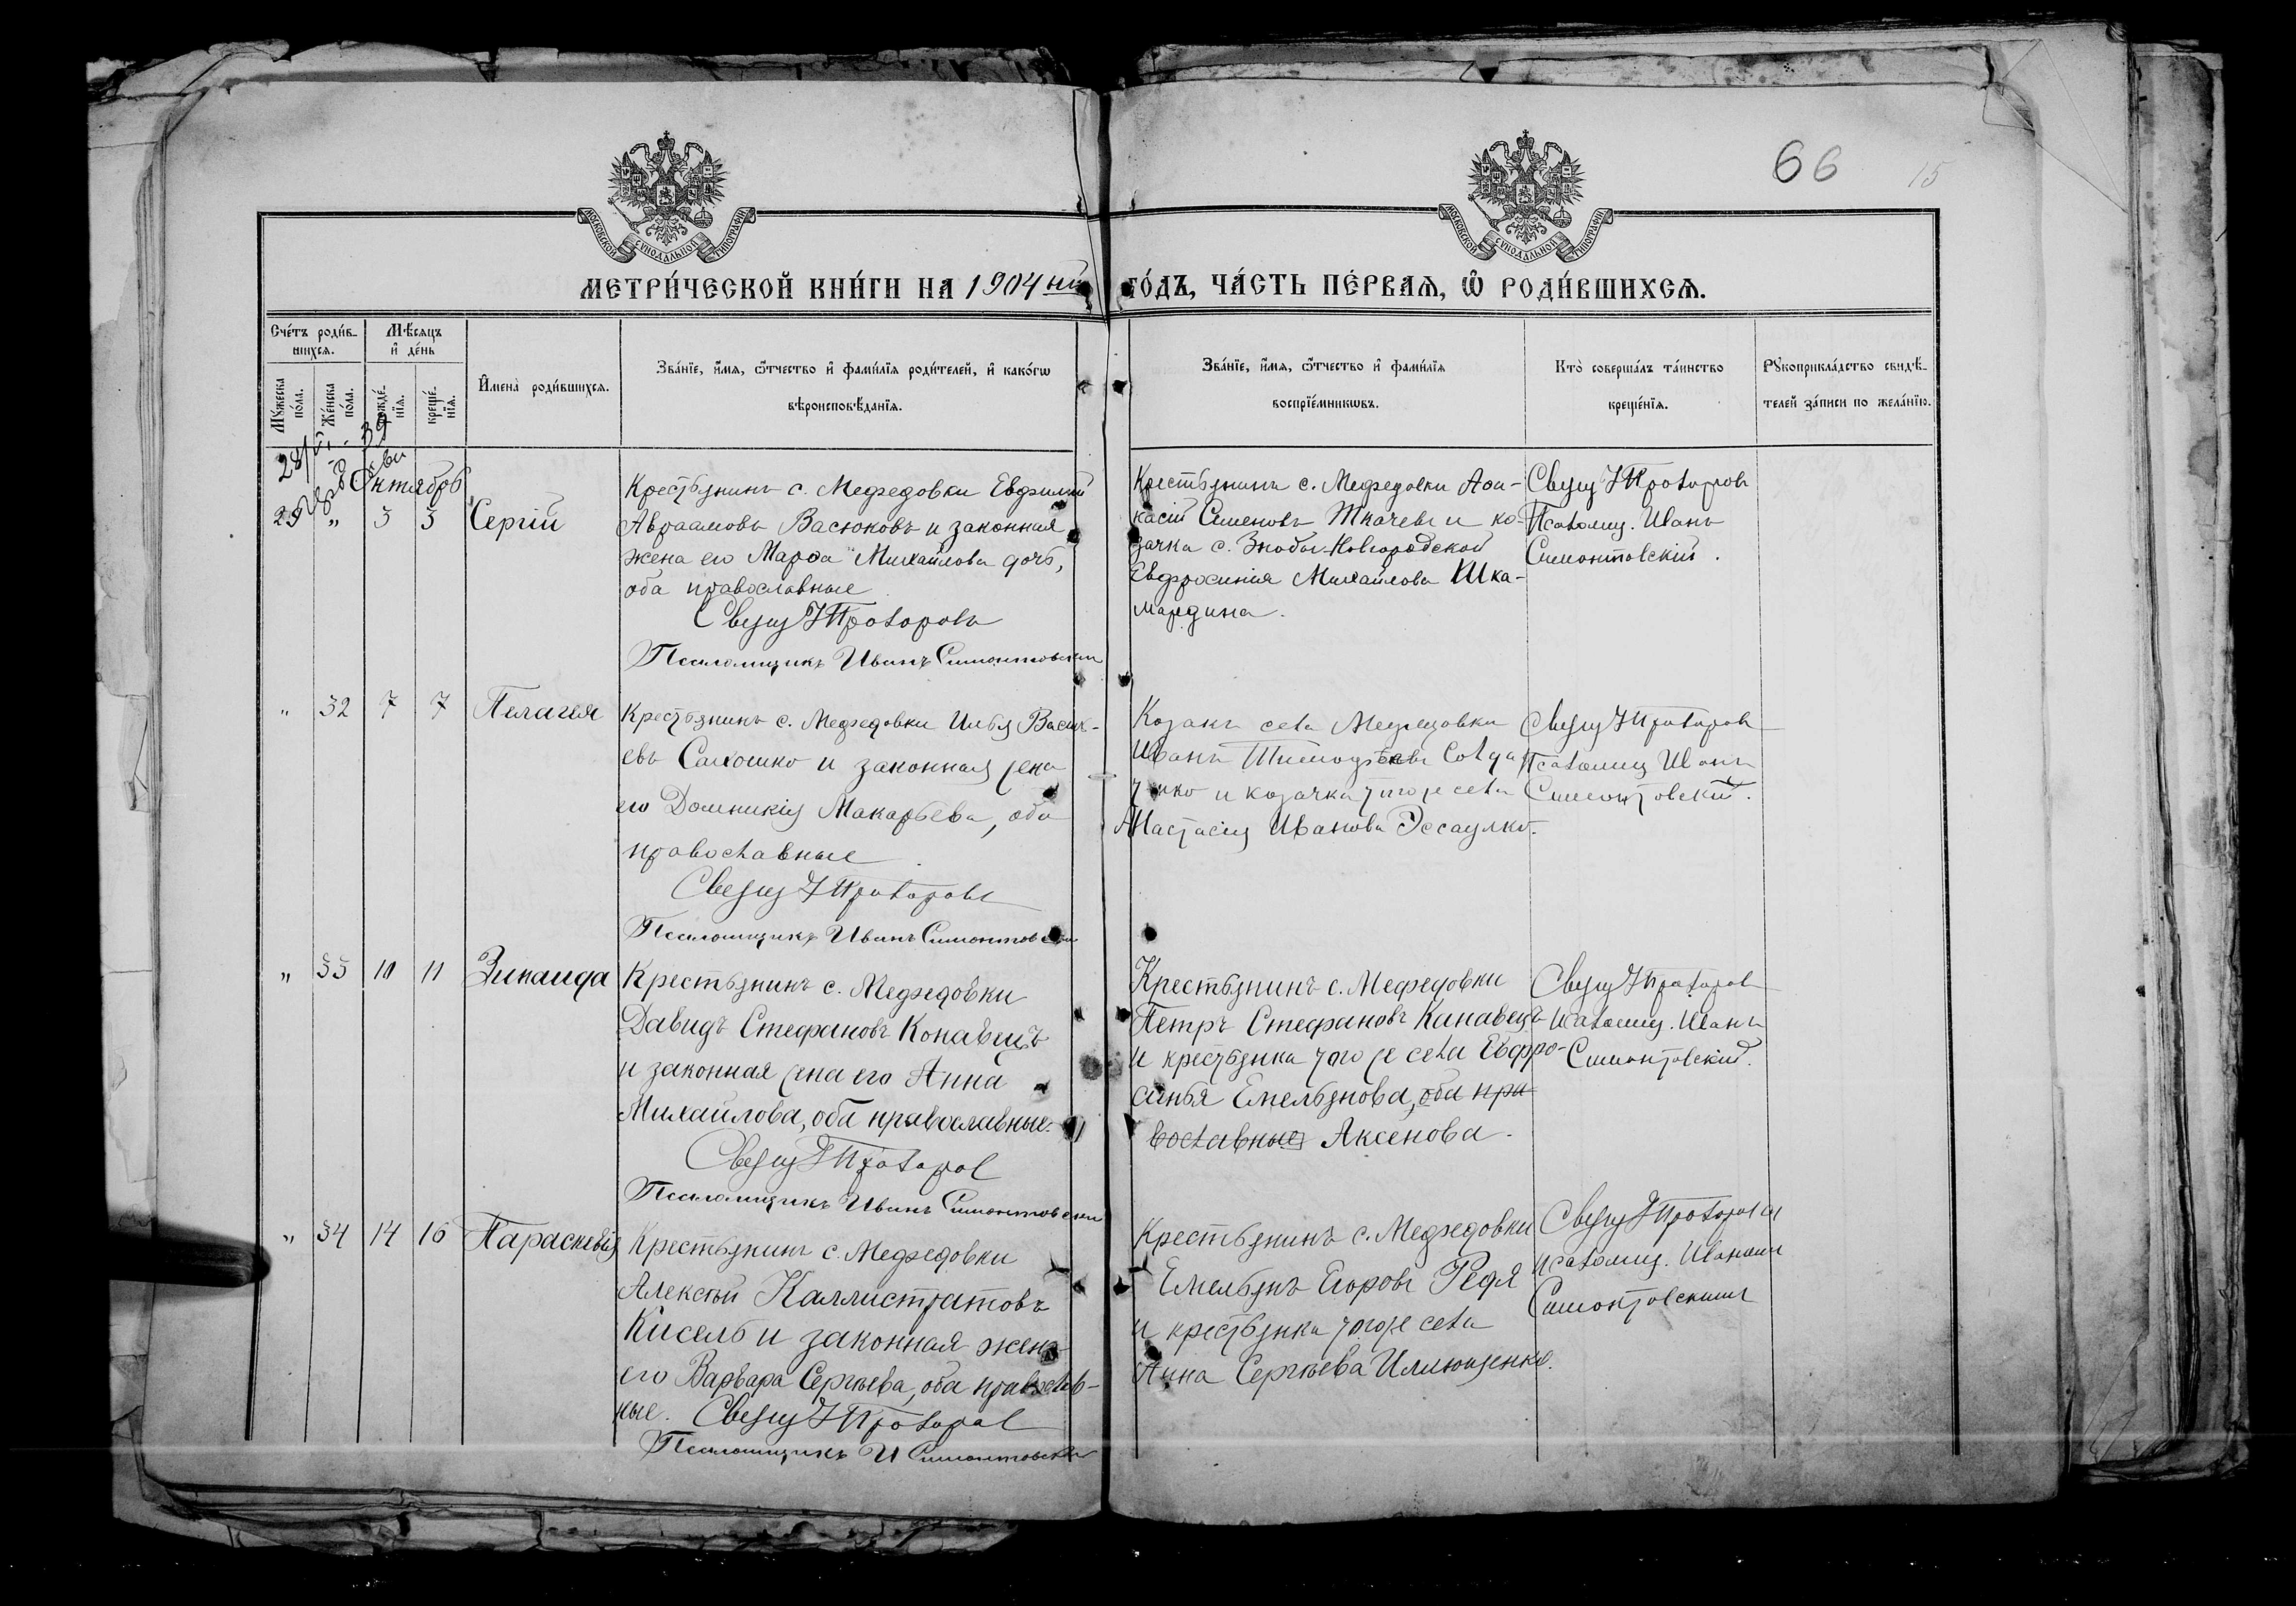 66 15
МОСКОВСКОЙ СѴНОДАЛЬНОЙ ТИПОГРАФІИ
МОСКОВСКОЙ СѴНОДАЛЬНОЙ ТИПОГРАФІИ
МЕТРИ́ЧЕСКОЙ КНИ́ГИ НА 1904 ый ГО́ДЪ, ЧА́СТЬ ПЕ́РВАѦ, Ѡ҆ РОДИ́ВШИХСѦ.
Сче́тъ роди́в-
шихсѧ.
Мѣ́сѧцъ
и҆ де́нь
Мꙋ́жеска по́ла.
Же́нска по́ла.
рожде́-
нїѧ.
креще́-
нїѧ.
И҆мена̀ роди́вшихсѧ.
Зва́нїе, и҆́мѧ, ѻ҆́тчество и҆ фами́лїѧ роди́телей, и҆ како́гѡ
вѣроисповѣ́данїѧ.
Зва́нїе, и҆́мѧ, ѻ҆́тчество и҆ фами́лїѧ
воспрїе́мникѡвъ.
Кто̀ соверша́лъ та́инство
креще́нїѧ.
Рꙋкоприкла́дство свидѣ́-
телей за́писи по жела́нїю.
Октябрь
29 " 3 3 Сергій
Крестьянинъ с. Медведовки Евфимій
Авраамовъ Васюковъ и законная
жена его Марѳа Михайлова дочь,
оба православные
Свящ Прохоровъ
Псаломщикъ Иванъ Симонтовскій
Крестьянинъ с. Медведовки Аѳа-
насій Семеновъ Ткачевъ и ко-
зачка с. Знобь-Новгородской
Евфросинія Михайлова Шка-
мардина.
Свящ Прохоровъ
Псаломщ. Иванъ
Симонтовскій.
" 32 7 7 Пелагея
Крестьянинъ с. Медведовки Илья Василь-
евъ Сахошко и законная жена
его Домникія Макарьева, оба
православные
Свящ Прохоровъ
Псаломщикъ Иванъ Симонтовскій
Козакъ села Медведовки
Иванъ Тимофѣевъ Солда-
тенко и козачка того же села
Анастасія Иванова Эссаулко.
Свящ Прохоровъ
Псаломщ Иванъ
Симонтовскій.
" 33 10 11 Зинаида
Крестьянинъ с. Медведовки
Давидъ Стефановъ Конавецъ
и законная жена его Анна
Михайлова, оба православные.
Свящ Прохоровъ
Псаломщикъ Иванъ Симонтовскій
Крестьянинъ с. Медведовки
Петръ Стефановъ Канавецъ
и крестьянка того же села Евфро-
синья Емельянова, оба пра
вославные Аксенова.
Свящ Прохоровъ
Псаломщ. Иванъ
Симонтовскій.
" 34 14 16 Параскевія
Крестьянинъ с. Медведовки
Алексѣй Каллистратовъ
Кисель и законная жена
его Варвара Сергѣева, оба православ-
ные. Свящ Прохоровъ
Псаломщикъ И Симонтовскій
Крестьянинъ с. Медведовки
Емельянъ Егоровъ Редя
и крестьянка того же села
Анна Сергѣева Илющенко.
Свящ Прохоровъ
псаломщ. Иваномъ
Симонтовскимъ